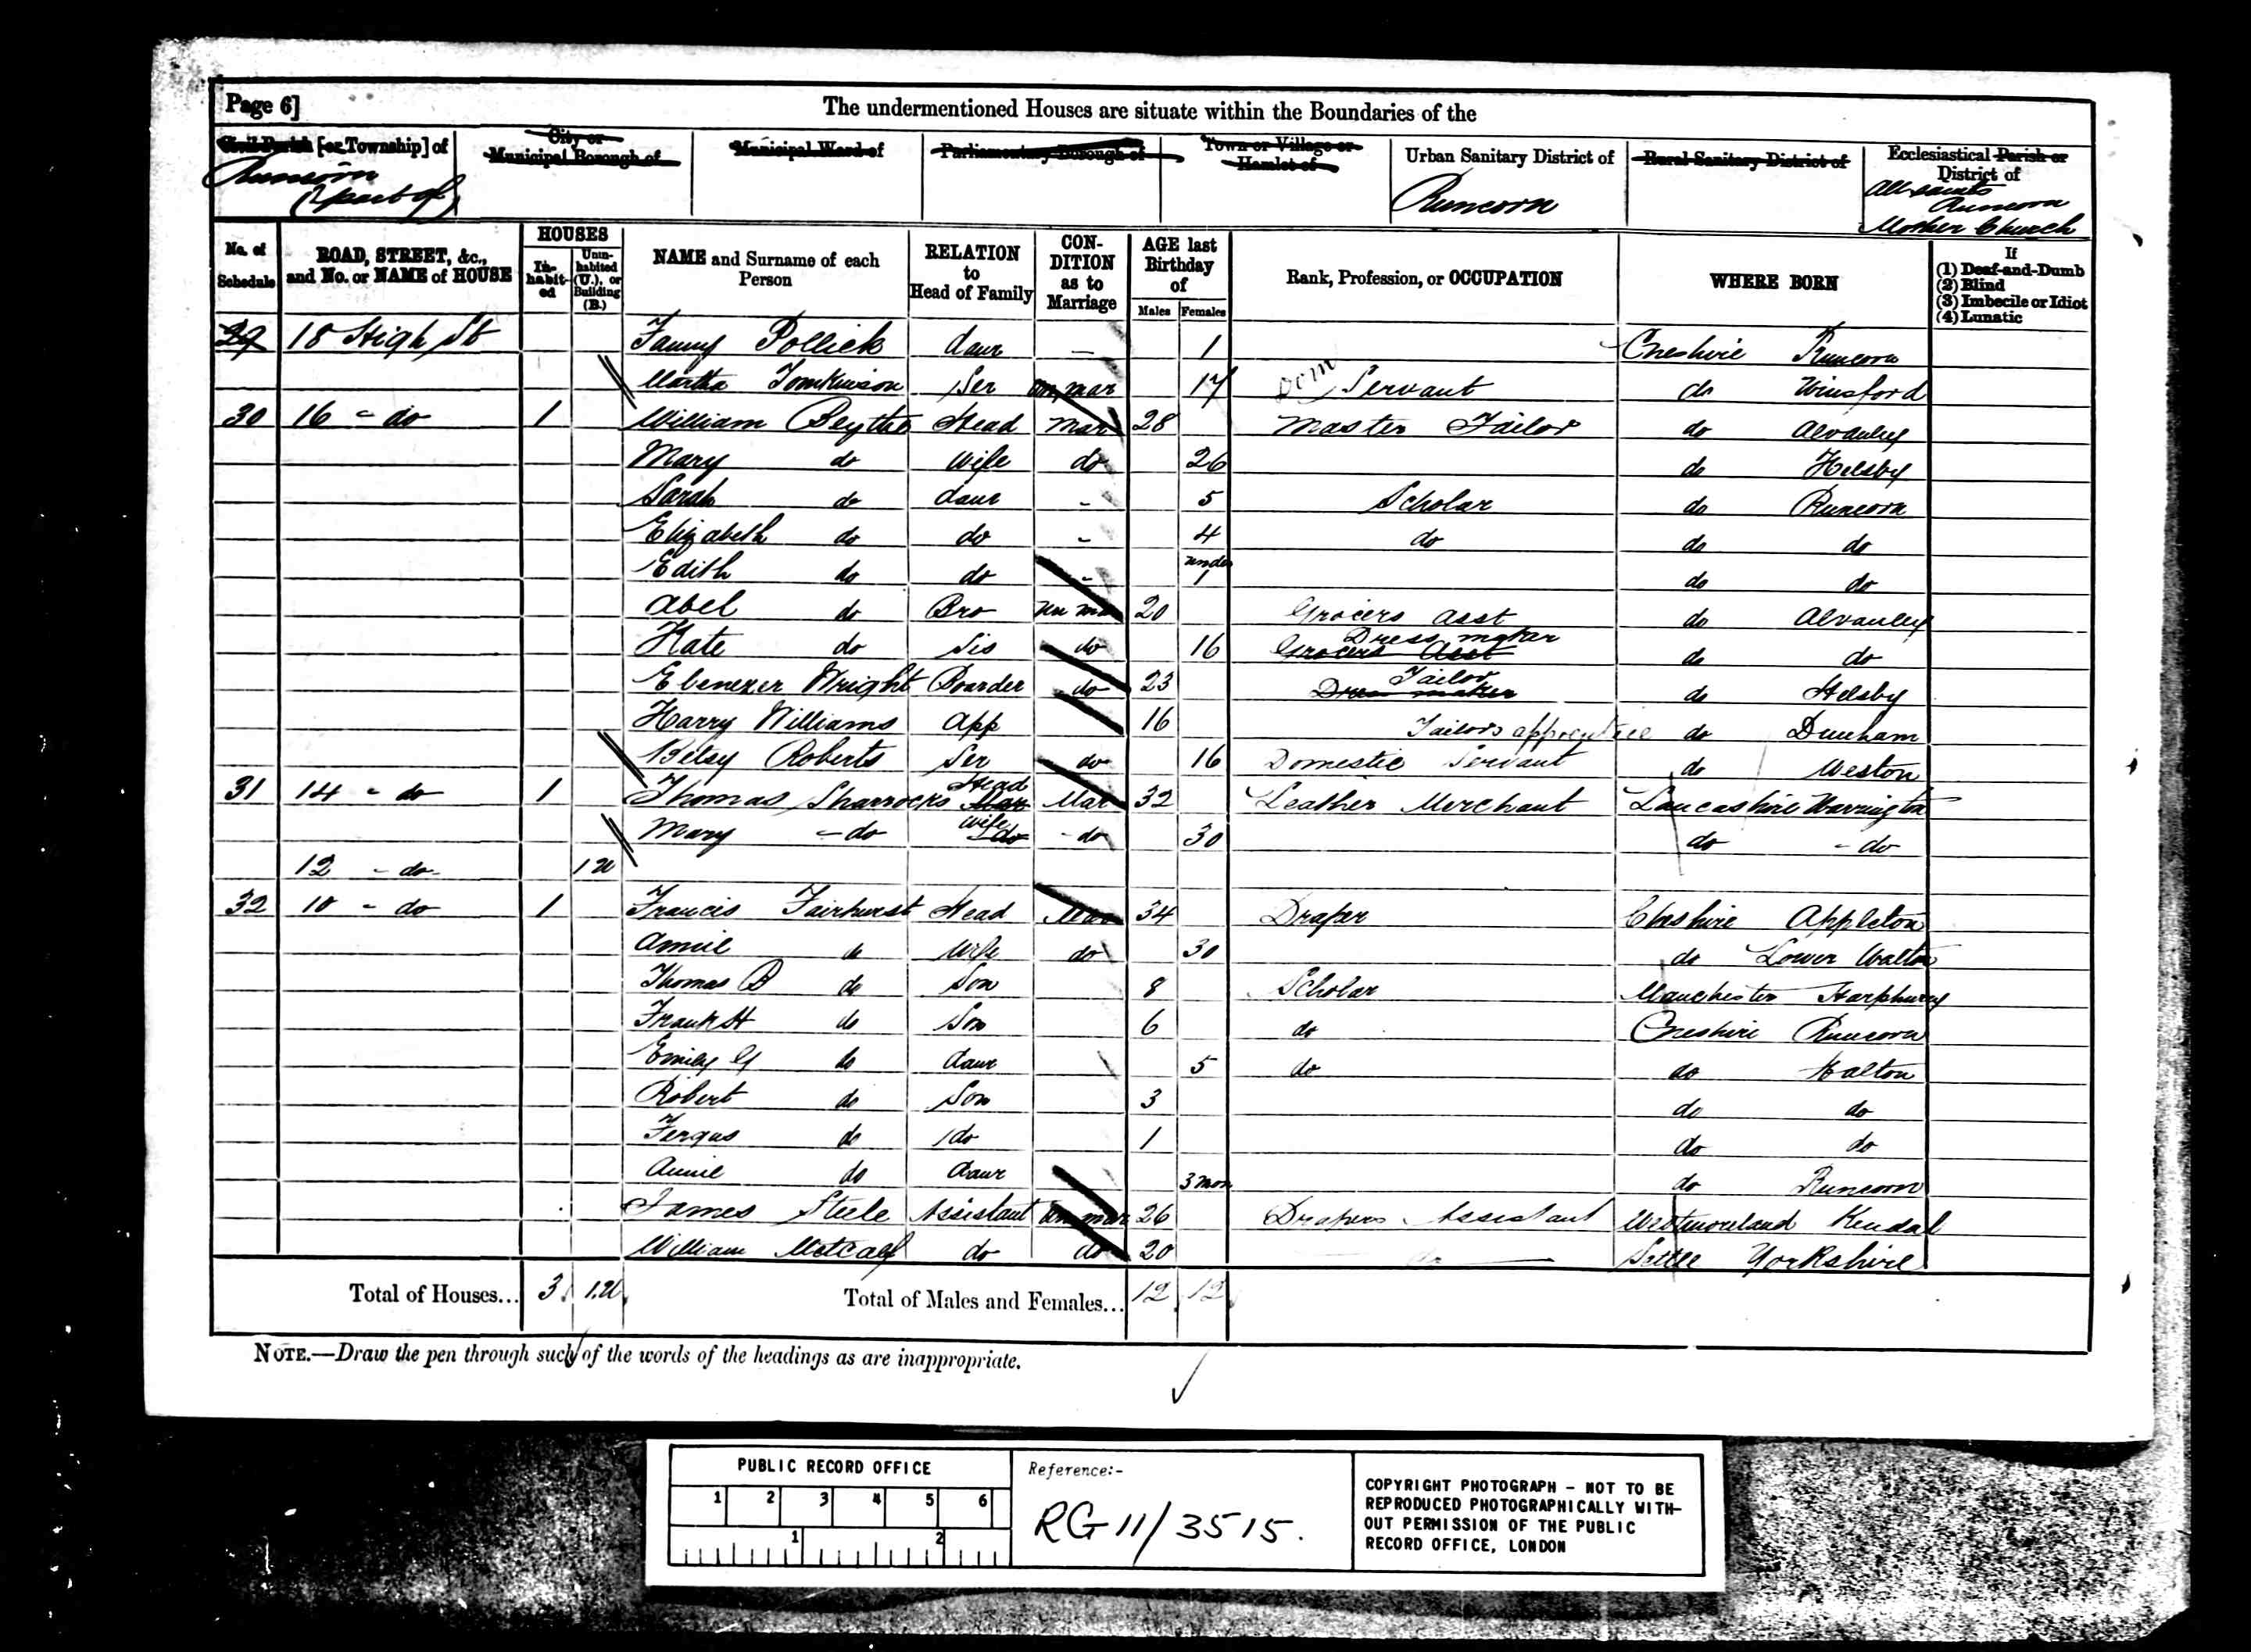 Page 6]
The undermentioned Houses are situate within the Boundaries of the
Civil Parish [or Township] of
Runcorn
(part of)
City or
Municipal Borough of
Municipal Ward of
Parliamentary Borough of
Town or Village or
Hamlet of
Urban Sanitary District of
Runcorn
Rural Sanitary District of
Ecclesiastical Parish or
District of
All saints
Runcorn
Mother Church
No. of
Schedule
ROAD, STREET, &c.,
and No. or NAME of HOUSE
HOUSES
In-
habit-
ed
Unin-
habited
(U.), or
Building
(B.)
NAME and Surname of each
Person
RELATION
to
Head of Family
CON-
DITION
as to
Marriage
AGE last
Birthday
of
Males Females
Rank, Profession, or OCCUPATION
WHERE BORN
If
(1) Deaf-and-Dumb
(2) Blind
(3) Imbecile or Idiot
(4) Lunatic
29 18 High St Fanny Pollick daur — 1 Cheshire Runcorn
Martha Tomkinson Ser un mar 17 Dom Servant do Winsford
30 16 - do 1 William Blythe Head Mar 28 Master Tailor do Alvanley
Mary do Wife do 26 do Helsby
Sarah do daur - 5 Scholar do Runcorn
Elizabeth do do - 4 do do do
Edith do do - under 1 do do
Abel do Bro un mar 20 Grocers Asst do Alvanley
Kate do Sis do 16 Grocers Asst Dress maker do do
Ebenezer Wright Boarder do 23 Dress maker Tailor do Helsby
Harry Williams App 16 Tailors apprentice do Dunham
Betsy Roberts Ser do 16 Domestic Servant do Weston
31 14 - do 1 Thomas Sharrocks Mar Head Mar 32 Leather Merchant Lancashire Warrington
Mary - do do wife - do 30 do - do
12 - do - 1 U
32 10 - do 1 Francis Fairhurst Head Mar 34 Draper Cheshire Appleton
Annie do Wife do 30 do Lower Walton
Thomas B do Son 8 Scholar Manchester Harphurey
Frank H do Son 6 do Cheshire Runcorn
Emily do daur 5 do do Halton
Robert do Son 3 do do
Fergus do do 1 do do
Annie do daur 3 mon do Runcorn
James Steele Assistant un mar 26 Drapers Assistant Westmoreland Kendal
William Metcalf do do 20 do Settle Yorkshire
Total of Houses... 3 1.U Total of Males and Females... 12 12
NOTE.—Draw the pen through such of the words of the headings as are inappropriate.
PUBLIC RECORD OFFICE
1 2 3 4 5 6
1 2
Reference:-
RG 11/3515.
COPYRIGHT PHOTOGRAPH - NOT TO BE
REPRODUCED PHOTOGRAPHICALLY WITH-
OUT PERMISSION OF THE PUBLIC
RECORD OFFICE, LONDON